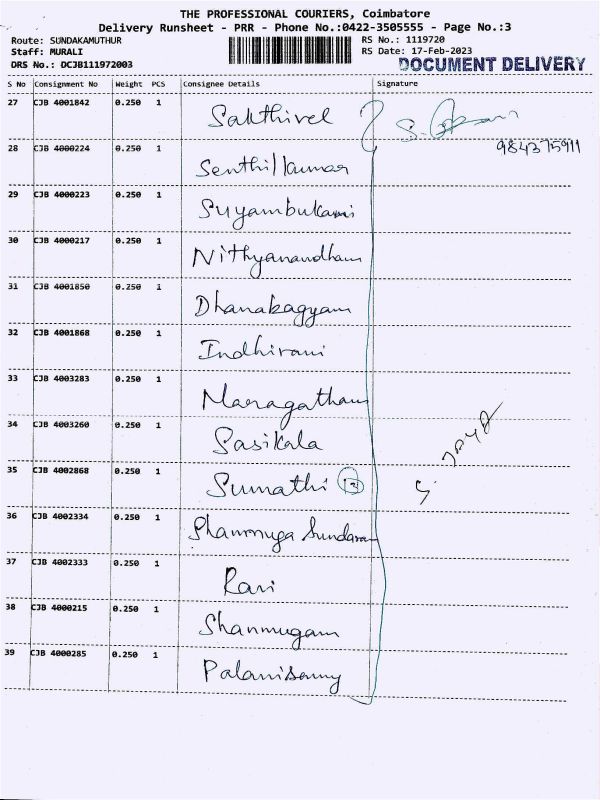 THE PROFESSIONAL COURIERS, Coimbatore
Delivery Runsheet - PRR - Phone No.:0422-3505555 - Page No.:3
Route: SUNDAKAMUTHUR RS No.: 1119720
Staff: MURALI RS Date: 17-Feb-2023
DRS No.: DCJB111972003 DOCUMENT DELIVERY
S No Consignment No Weight PCS Consignee Details Signature
27 CJB 4001842 0.250 1 Sakthivel
9843775911
28 CJB 4000224 0.250 1 Senthilkumar
29 CJB 4000223 0.250 1 Suyambukani
30 CJB 4000217 0.250 1 Nithyanandham
31 CJB 4001850 0.250 1 Dhanabagyam
32 CJB 4001868 0.250 1 Indhirani
33 CJB 4003283 0.250 1 Maragatham
34 CJB 4003260 0.250 1 Sasikala
35 CJB 4002868 0.250 1 Sumathi S. JAYA
36 CJB 4002334 0.250 1 Shanmuga Sundaram
37 CJB 4002333 0.250 1 Ravi
38 CJB 4000215 0.250 1 Shanmugam
39 CJB 4000285 0.250 1 Palanisamy